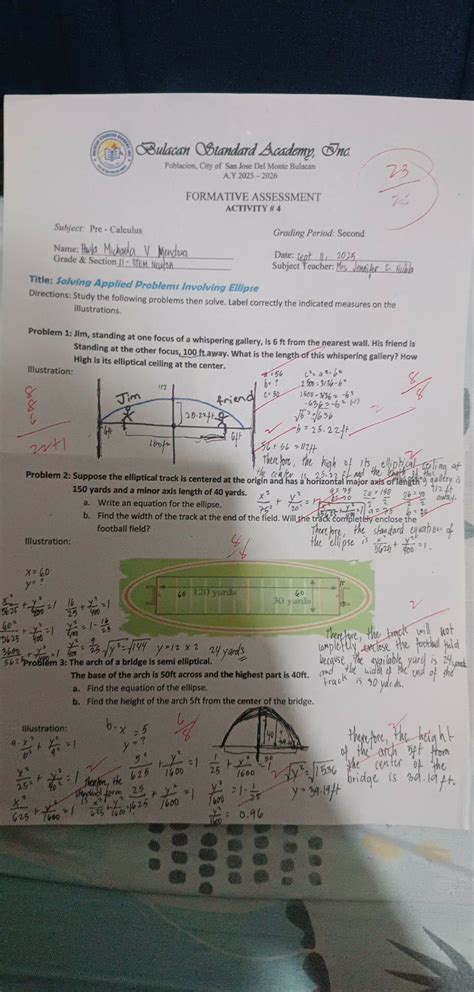 Bulacan Standard Academy, Inc.
Poblacion, City of San Jose Del Monte Bulacan
A.Y 2025 – 2026
FORMATIVE ASSESSMENT
ACTIVITY # 4
23
Subject: Pre - Calculus
Grading Period: Second
Name: Michaela V
Date: Sept 11, 2025
Grade & Section 11 - STEM
Subject Teacher: Mrs Jennifer C.
Title: Solving Applied Problems Involving Ellipse
Directions: Study the following problems then solve. Label correctly the indicated measures on the
illustrations.
Problem 1: Jim, standing at one focus of a whispering gallery, is 6 ft from the nearest wall. His friend is
Standing at the other focus, 100 ft away. What is the length of this whispering gallery? How
High is its elliptical ceiling at the center.
Illustration:
a = 56
b = ?
c = 50
c² = a² - b²
2500 = 3136 - b²
2500 - 3136 = -b²
-636 = -b²
√b² = √636
b = 25.22 ft
56 + 56 = 112 ft
8
8
6
22+1
8/8
2
112
Jim
friend
25.22 ft
6ft
100ft
6ft
Therefore, the high of its elliptical ceiling at
the center is 25.22 ft and the length of this
whispering gallery is
112 ft
away.
Problem 2: Suppose the elliptical track is centered at the origin and has a horizontal major axis of length
150 yards and a minor axis length of 40 yards.
a. Write an equation for the ellipse.
b. Find the width of the track at the end of the field. Will the track completely enclose the
football field?
x²/75² + y²/20² = 1
x²/5625 + y²/400 = 1
2a = 150
a = 75
b = 20
Therefore, the standard equation of
the ellipse is x²/5625 + y²/400 = 1.
Illustration:
120 yards
30 yards
60
60
x = 60
y = ?
x²/5625 + y²/400 = 1
60²/5625 + y²/400 = 1
3600/5625 + y²/400 = 1
16/25 + y²/400 = 1
y²/400 = 1 - 16/25
y²/400 = 9/25
√y² = √144
y = 12 x 2
24 yards
Therefore, the track will not
completely enclose the football field
because the available yard is 24 yards
and the width of the end of the
track is 30 yards.
Problem 3: The arch of a bridge is semi elliptical.
The base of the arch is 50ft across and the highest part is 40ft.
a. Find the equation of the ellipse.
b. Find the height of the arch 5ft from the center of the bridge.
Illustration:
40
50
a. x²/a² + y²/b² = 1
x²/25² + y²/40² = 1
x²/625 + y²/1600 = 1
Therefore, the
standard form
is x²/625 + y²/1600 = 1.
b. x = 5
y = ?
5²/625 + y²/1600 = 1
25/625 + y²/1600 = 1
1/25 + y²/1600 = 1
y²/1600 = 1 - 1/25
y²/1600 = 0.96
√y² = √1536
y = 39.19 ft
Therefore, the height
of the arch 5ft from
the center of the
bridge is 39.19 ft.